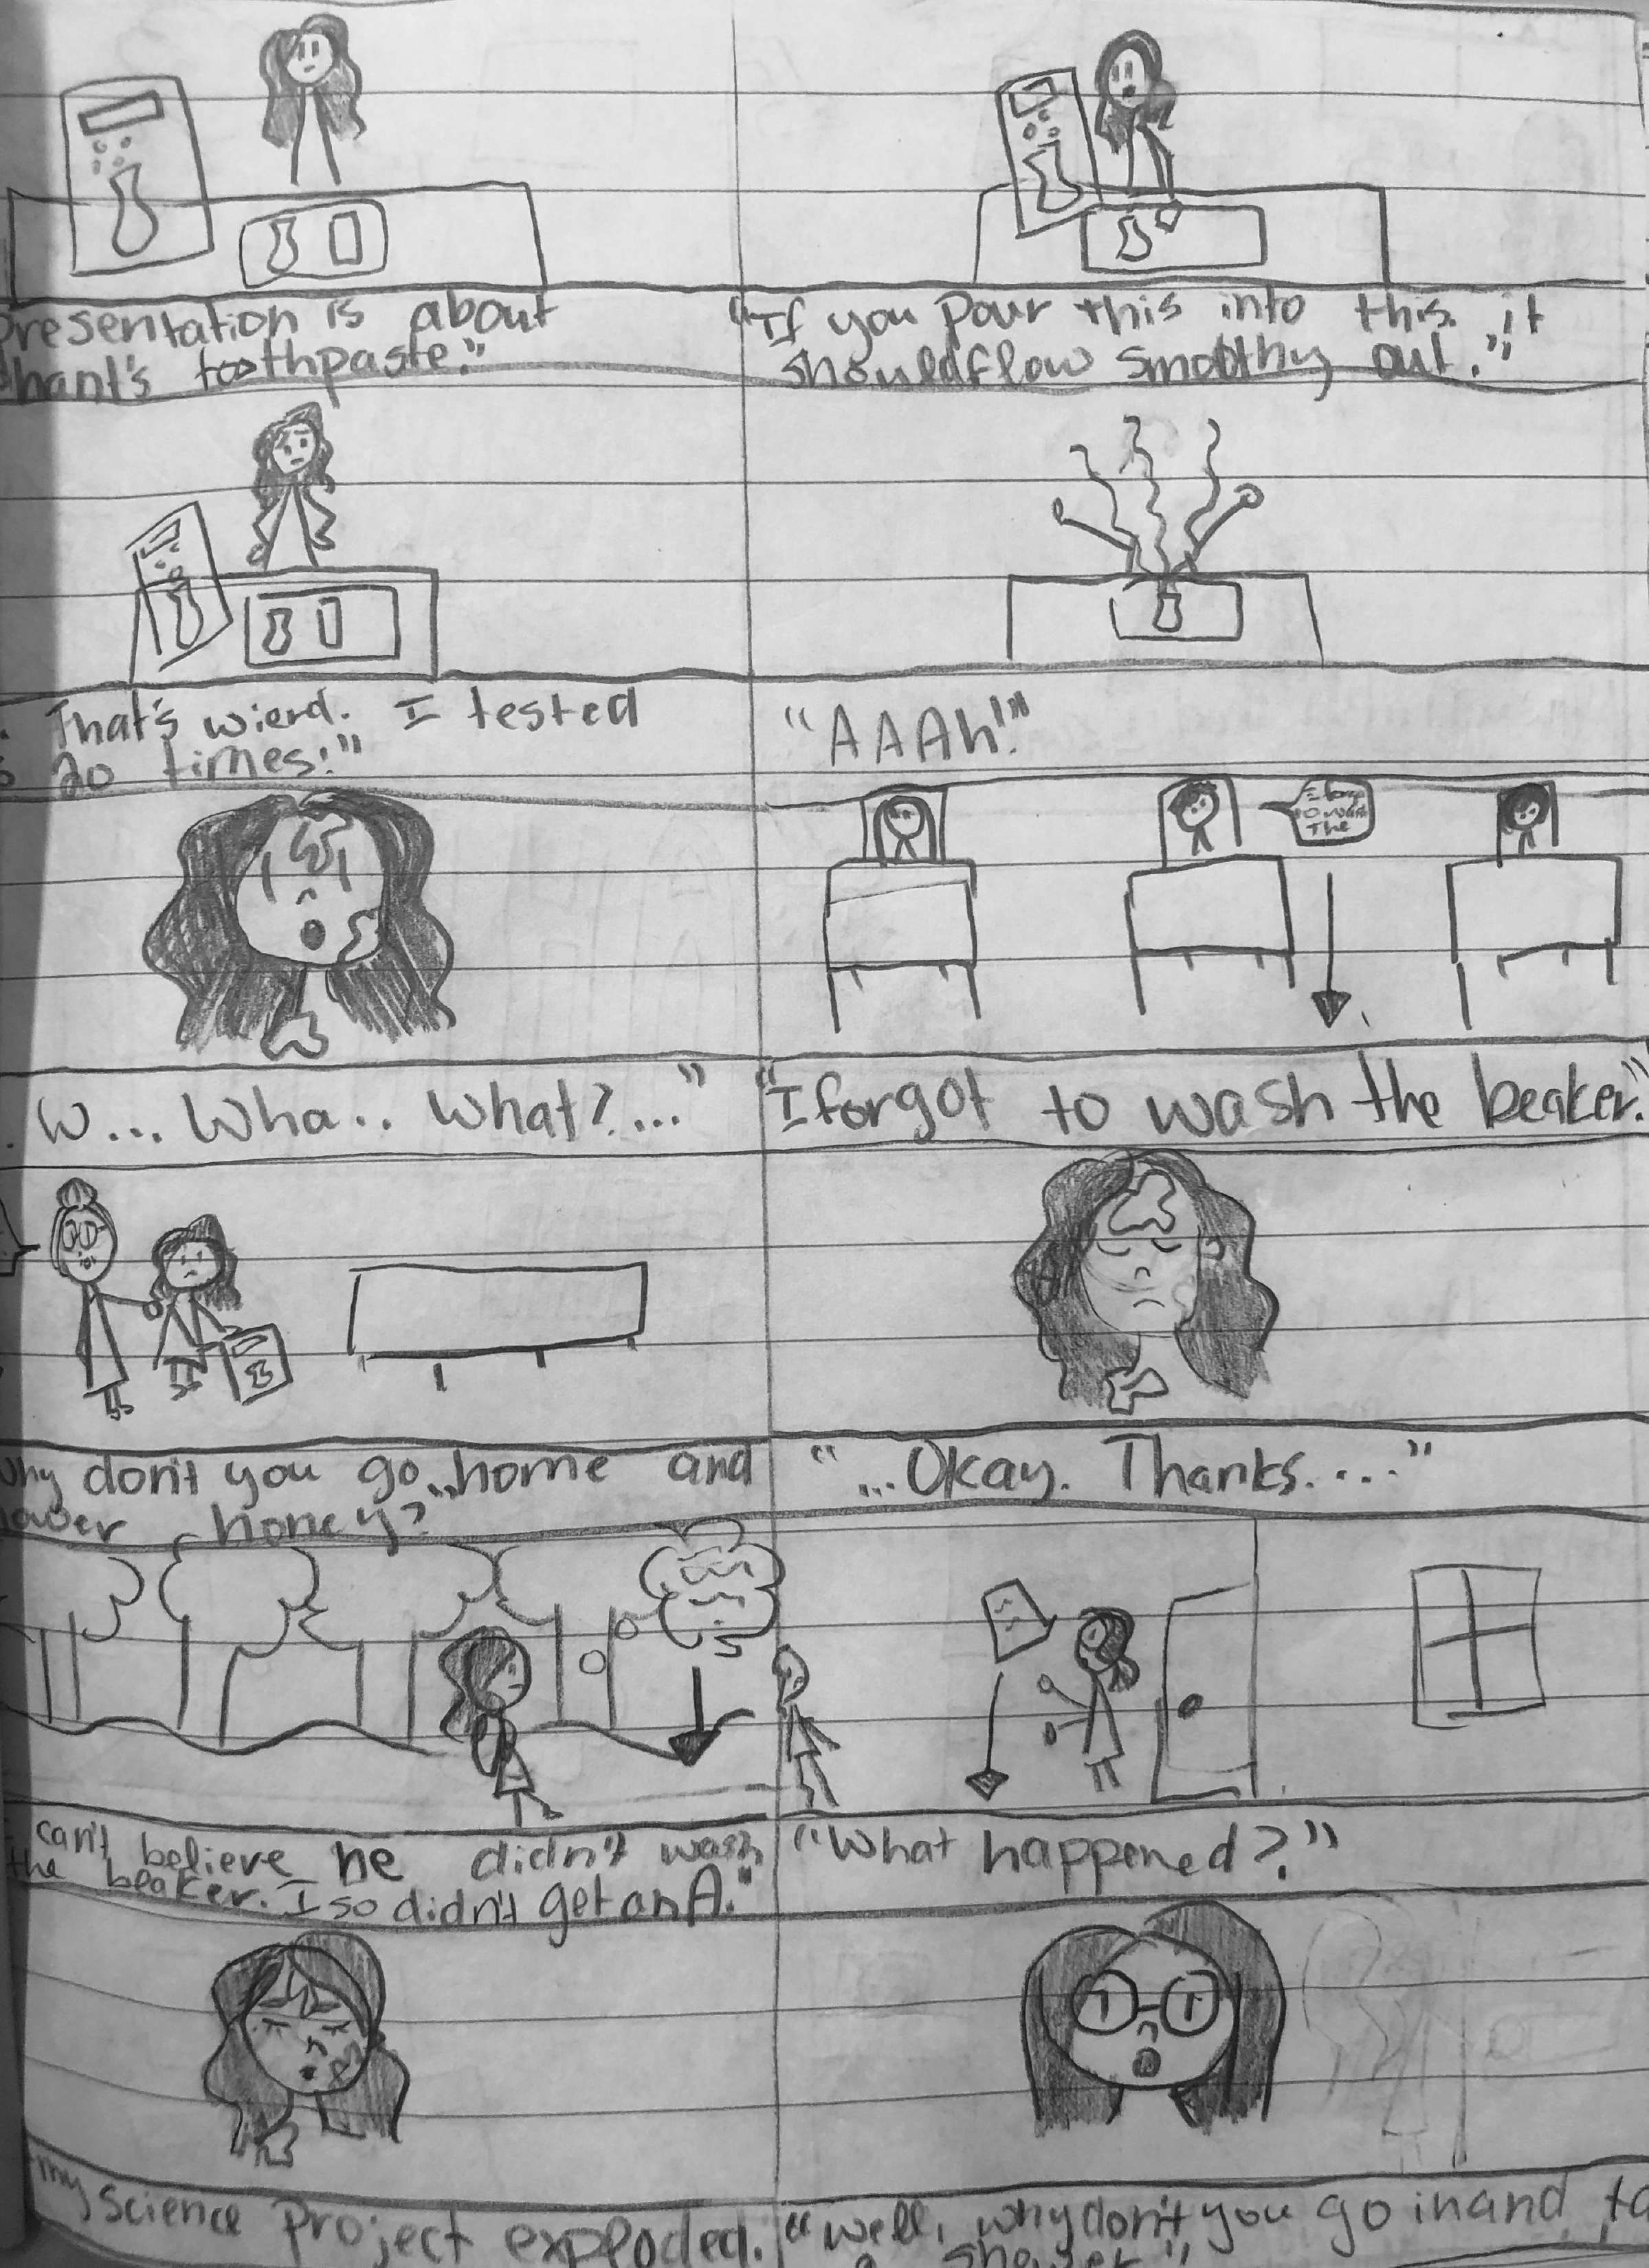 presentation is about
hant's toothpaste."
"If you pour this into this it
should flow smoothy out."
That's wierd. I tested
20 times."
"AAAh!"
I forgot
to wash
The
W... Wha.. What?..."
"I forgot to wash the beaker."
why don't you go home and
ower honey?"
"...Okay. Thanks...."
can't believe he didn't wash
the beaker. I so didn't get an A."
"What happened?"
my science project exploded.
"Well, why don't you go in and ta
a shower"